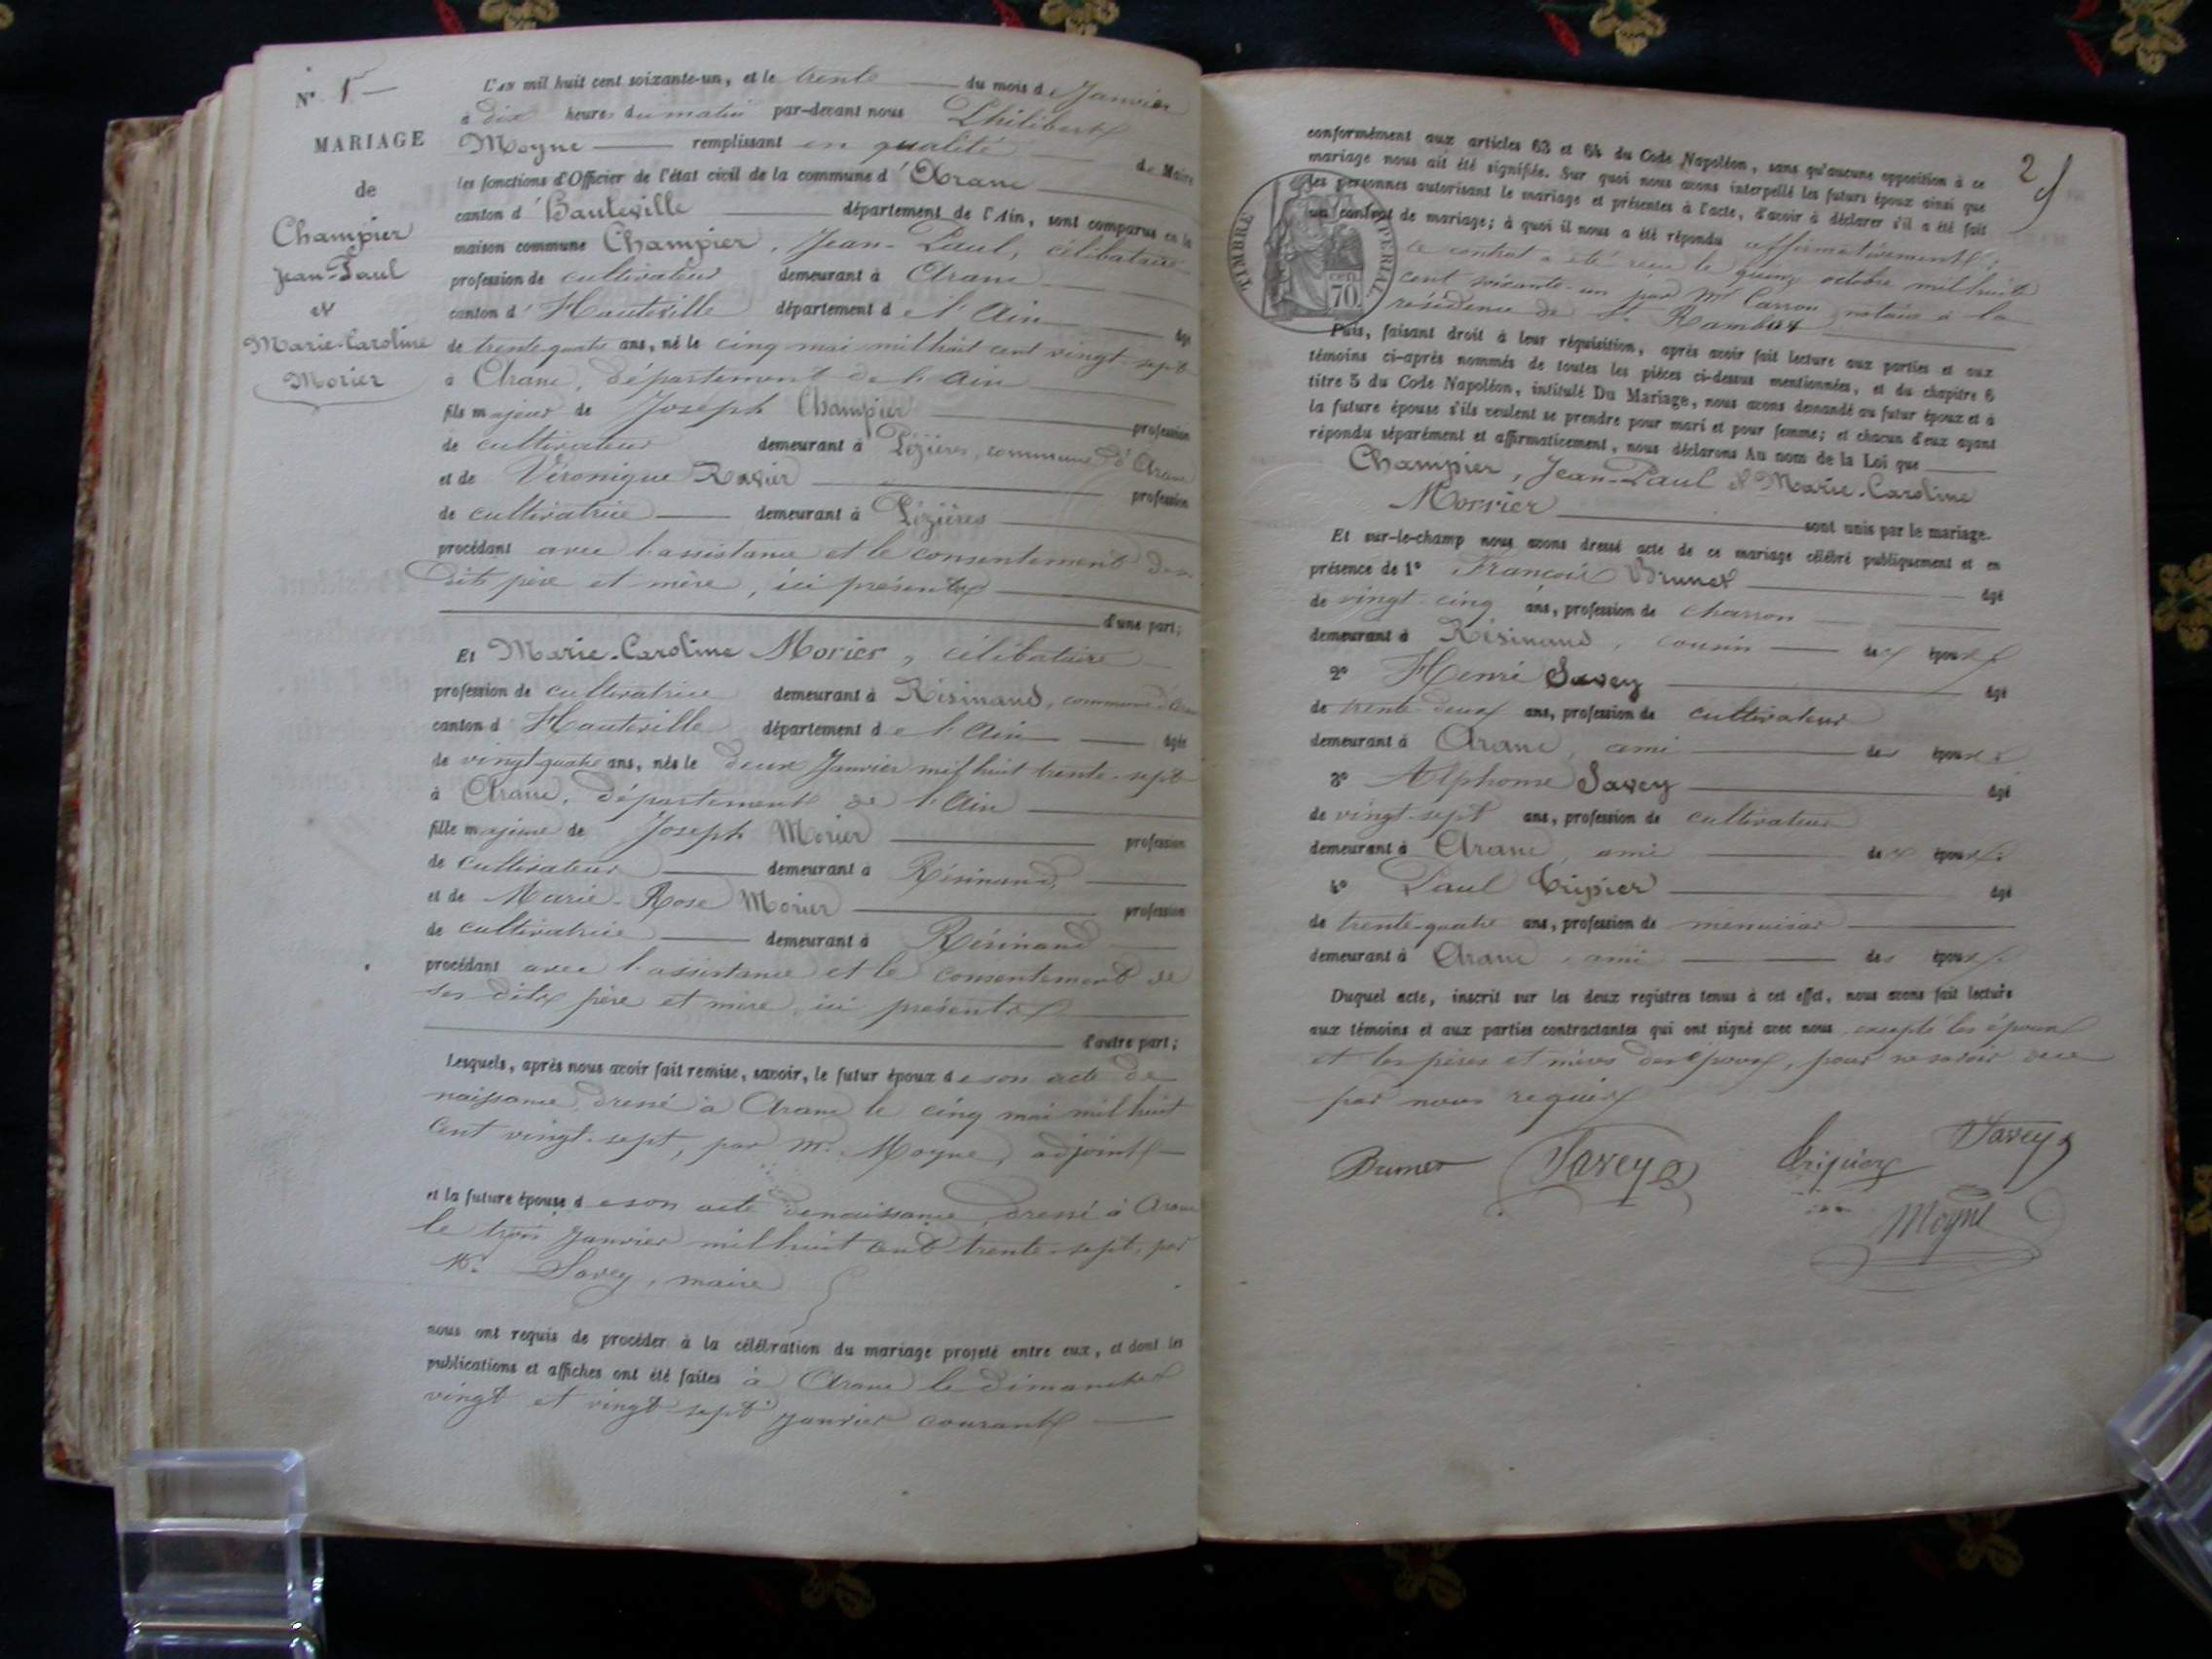 N° 1 —
MARIAGE
de
Champier
Jean-Paul
et
Marie-Caroline
Morier
L'AN mil huit cent soixante-un, et le trente du mois de Janvier
à dix heures du matin par-devant nous Philibert
Moyne remplissant en qualité de Maire
les fonctions d'Officier de l'état civil de la commune d'Aranc
canton d'Hauteville département de l'Ain, sont comparus en la
maison commune Champier, Jean-Paul, célibataire
profession de cultivateur demeurant à Aranc
canton d'Hauteville département de l'Ain âgé
de trente-quatre ans, né le cinq mai mil huit cent vingt-sept
à Aranc, département de l'Ain
fils majeur de Joseph Champier profession
de cultivateur demeurant à Pézières, commune d'Aranc
et de Véronique Ravier profession
de cultivatrice demeurant à Pézières
procédant avec l'assistance et le consentement des
dits père et mère, ici présents
d'une part;
Et Marie-Caroline Morier, célibataire
profession de cultivatrice demeurant à Résinand, commune d'Aranc
canton d'Hauteville département de l'Ain âgée
de vingt-quatre ans, née le deux Janvier mil huit trente-sept
à Aranc, département de l'Ain
fille majeure de Joseph Morier profession
de cultivateur demeurant à Résinand
et de Marie-Rose Morier profession
de cultivatrice demeurant à Résinand
procédant avec l'assistance et le consentement de
ses dits père et mère, ici présents
d'autre part;
Lesquels, après nous avoir fait remise, savoir, le futur époux de son acte de
naissance, dressé à Aranc le cinq mai mil huit
cent vingt-sept, par Mr. Moyne, adjoint
et la future épouse de son acte de naissance, dressé à Aranc
le trois Janvier mil huit cent trente-sept, par
Mr. Savey, maire
nous ont requis de procéder à la célébration du mariage projeté entre eux, et dont les
publications et affiches ont été faites à Aranc le dimanches
vingt et vingt-sept janvier courant
2
conformément aux articles 63 et 64 du Code Napoléon, sans qu'aucune opposition à ce
mariage nous ait été signifiée. Sur quoi nous avons interpellé les futurs époux ainsi que
les personnes autorisant le mariage et présentes à l'acte, d'avoir à déclarer s'il a été fait
un contrat de mariage; à quoi il nous a été répondu affirmativement;
le contrat a été reçu le quinze octobre mil huit
cent soixante-un par Mr Carron notaire à la
résidence de St Rambert
TIMBRE IMPÉRIAL
70 cen
Puis, faisant droit à leur réquisition, après avoir fait lecture aux parties et aux
témoins ci-après nommés de toutes les pièces ci-dessus mentionnées, et du chapitre 6
titre 5 du Code Napoléon, intitulé Du Mariage, nous avons demandé au futur époux et à
la future épouse s'ils veulent se prendre pour mari et pour femme; et chacun d'eux ayant
répondu séparément et affirmativement, nous déclarons Au nom de la Loi que
Champier, Jean-Paul et Marie-Caroline
Morier sont unis par le mariage.
Et sur-le-champ nous avons dressé acte de ce mariage célébré publiquement et en
présence de 1° François Brunet âgé
de vingt-cinq ans, profession de charron
demeurant à Résinand, cousin des époux
2° Henri Savey âgé
de trente-deux ans, profession de cultivateur
demeurant à Aranc, ami des époux
3° Alphonse Savey âgé
de vingt-sept ans, profession de cultivateur
demeurant à Aranc, ami des époux
4° Paul Tripier âgé
de trente-quatre ans, profession de menuisier
demeurant à Aranc, ami des époux
Duquel acte, inscrit sur les deux registres tenus à cet effet, nous avons fait lecture
aux témoins et aux parties contractantes qui ont signé avec nous excepté les époux
et les pères et mères des époux, pour ne savoir de ce
par nous requis
Brunet Savey Tripier Savey
Moyne